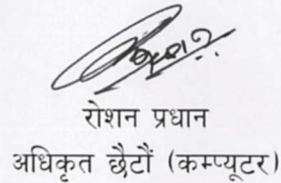 रोशन प्रधान
अधिकृत छैटौं (कम्प्यूटर)